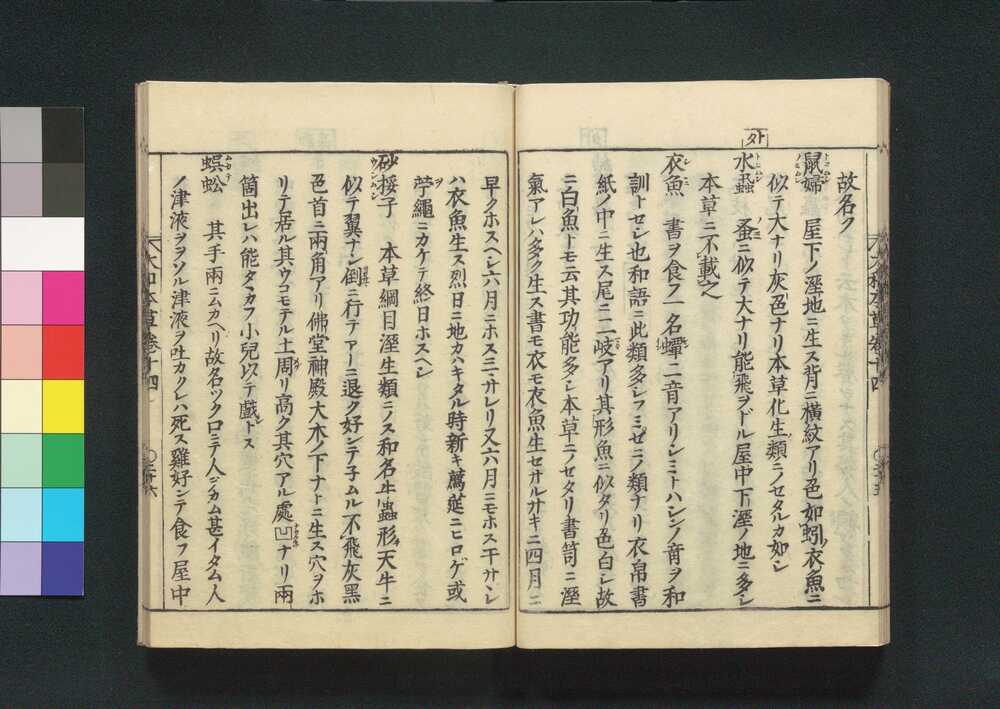 外
故名ク
鼠婦 屋下ノ溼地ニ生ス背ニ横紋アリ色如蚓衣魚ニ
似テ大ナリ灰色ナリ本草化生類ニノセタルカ如シ
水蝨 蚤ニ似テ大ナリ能飛ヲドル屋中下溼ノ地ニ多シ
本草ニ不載之
衣魚 書ヲ食フ一名蟫ニ音アリシミトハシンノ音ヲ和
訓トセシ也和語ニ此類多シフミゼニノ類ナリ衣帛書
紙ノ中ニ生ス尾ニ二岐アリ其形魚ニ似タリ色白シ故
ニ白魚トモ云其功能多シ本草ニノセタリ書笥ニ溼
氣アレハ多ク生ス書モ衣モ衣魚生セサルサキニ四月ニ
大和本草卷十四
早クホスヘシ六月ニホス
ハ衣魚生ス烈日ニ地カハキタル時新キ薦筵ニヒロゲ或
苧繩ニカケテ終日ホスヘシ
砂挼子 本草綱目溼生類ニノス和名
蟲形天牛ニ
似テ翼ナシ倒ニ行テ
退ク好シテ子ムル不飛灰黑
色首ニ兩角アリ佛堂神殿大木ノ下ナトニ生ス穴ヲホ
リテ居ル其ウコモテル土周リ高ク其穴アル處凹ナリ兩
箇出レハ能タヽカフ小兒以テ戯トス
蜈蚣 其手兩ニムカヘリ故名ツク口ニテ人ヲカム甚イタム人
ノ津液ヲヲソル津液ヲ吐カクレハ死ス雞好ンテ食フ屋中
大和本草卷十四